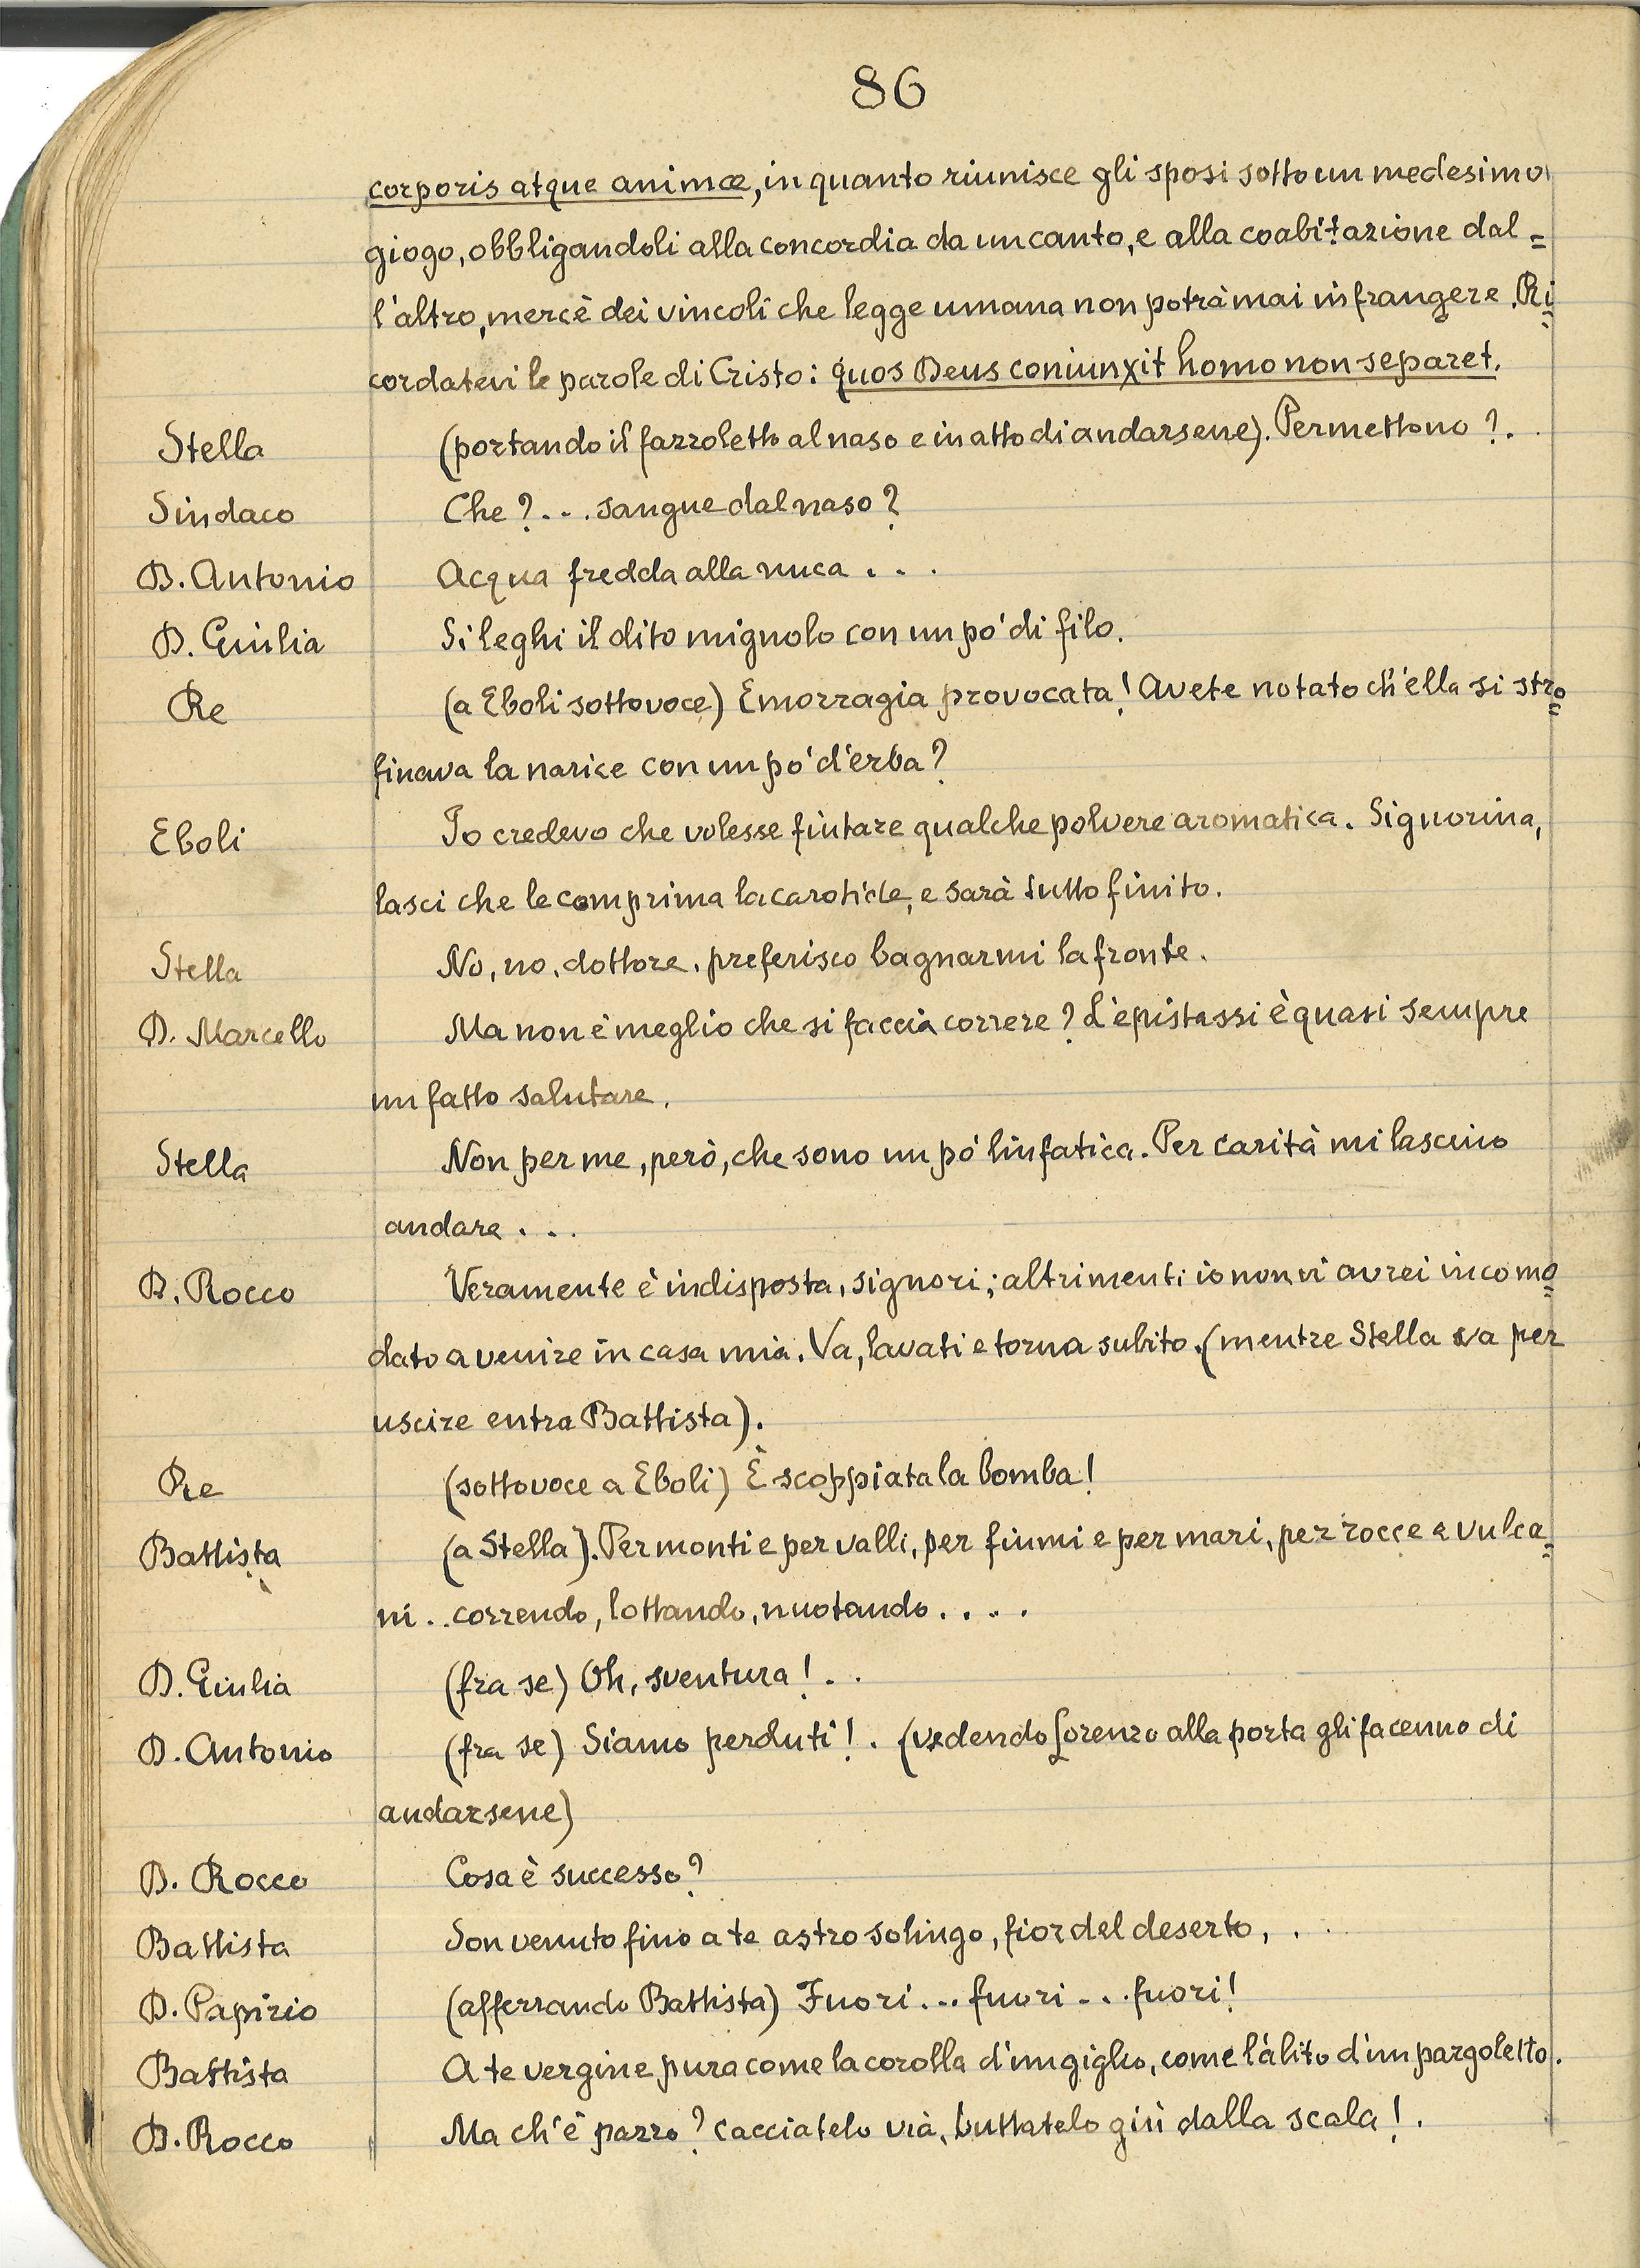 86
corporis atque animæ, in quanto riunisce gli sposi sotto un medesimo
giogo, obbligandoli alla concordia da un canto, e alla coabitazione dal=
l'altro, mercè dei vincoli che legge umana non potrà mai infrangere. Ri=
cordatevi le parole di Cristo: quos Deus coniunxit homo non separet.
Stella (portando il fazzoletto al naso e in atto di andarsene). Permettono?.
Sindaco Che?... sangue dal naso?
D. Antonio Acqua fredda alla nuca...
D. Giulia Si leghi il dito mignolo con un po' di filo.
Re (a Eboli sottovoce) Emorragia provocata! Avete notato ch'ella si stro=
finava la narice con un po' d'erba?
Eboli Io credevo che volesse fiutare qualche polvere aromatica. Signorina,
lasci che le comprima la carotide, e sarà tutto finito.
Stella No, no, dottore, preferisco bagnarmi la fronte.
D. Marcello Ma non è meglio che si faccia correre? L'epistassi è quasi sempre
un fatto salutare.
Stella Non per me, però, che sono un po' linfatica. Per carità mi lascino
andare...
D. Rocco Veramente è indisposta, signori; altrimenti io non vi avrei incomo=
dato a venire in casa mia. Va, lavati e torna subito. (mentre Stella va per
uscire entra Battista).
Re (sottovoce a Eboli) È scoppiata la bomba!
Battista (a Stella). Per monti e per valli, per fiumi e per mari, per rocce e vulca=
ni.. correndo, lottando, nuotando....
D. Giulia (fra se) Oh, sventura!..
D. Antonio (fra se) Siamo perduti!. (vedendo Lorenzo alla porta gli fa cenno di
andarsene)
D. Rocco Cosa è successo?
Battista Son venuto fino a te astro solingo, fior del deserto,..
D. Papirio (afferrando Battista) Fuori... fuori... fuori!
Battista A te vergine pura come la corolla d'un giglio, come l'alito d'un pargoletto.
D. Rocco Ma ch'è pazzo? Cacciatelo via, buttatelo giù dalla scala!.